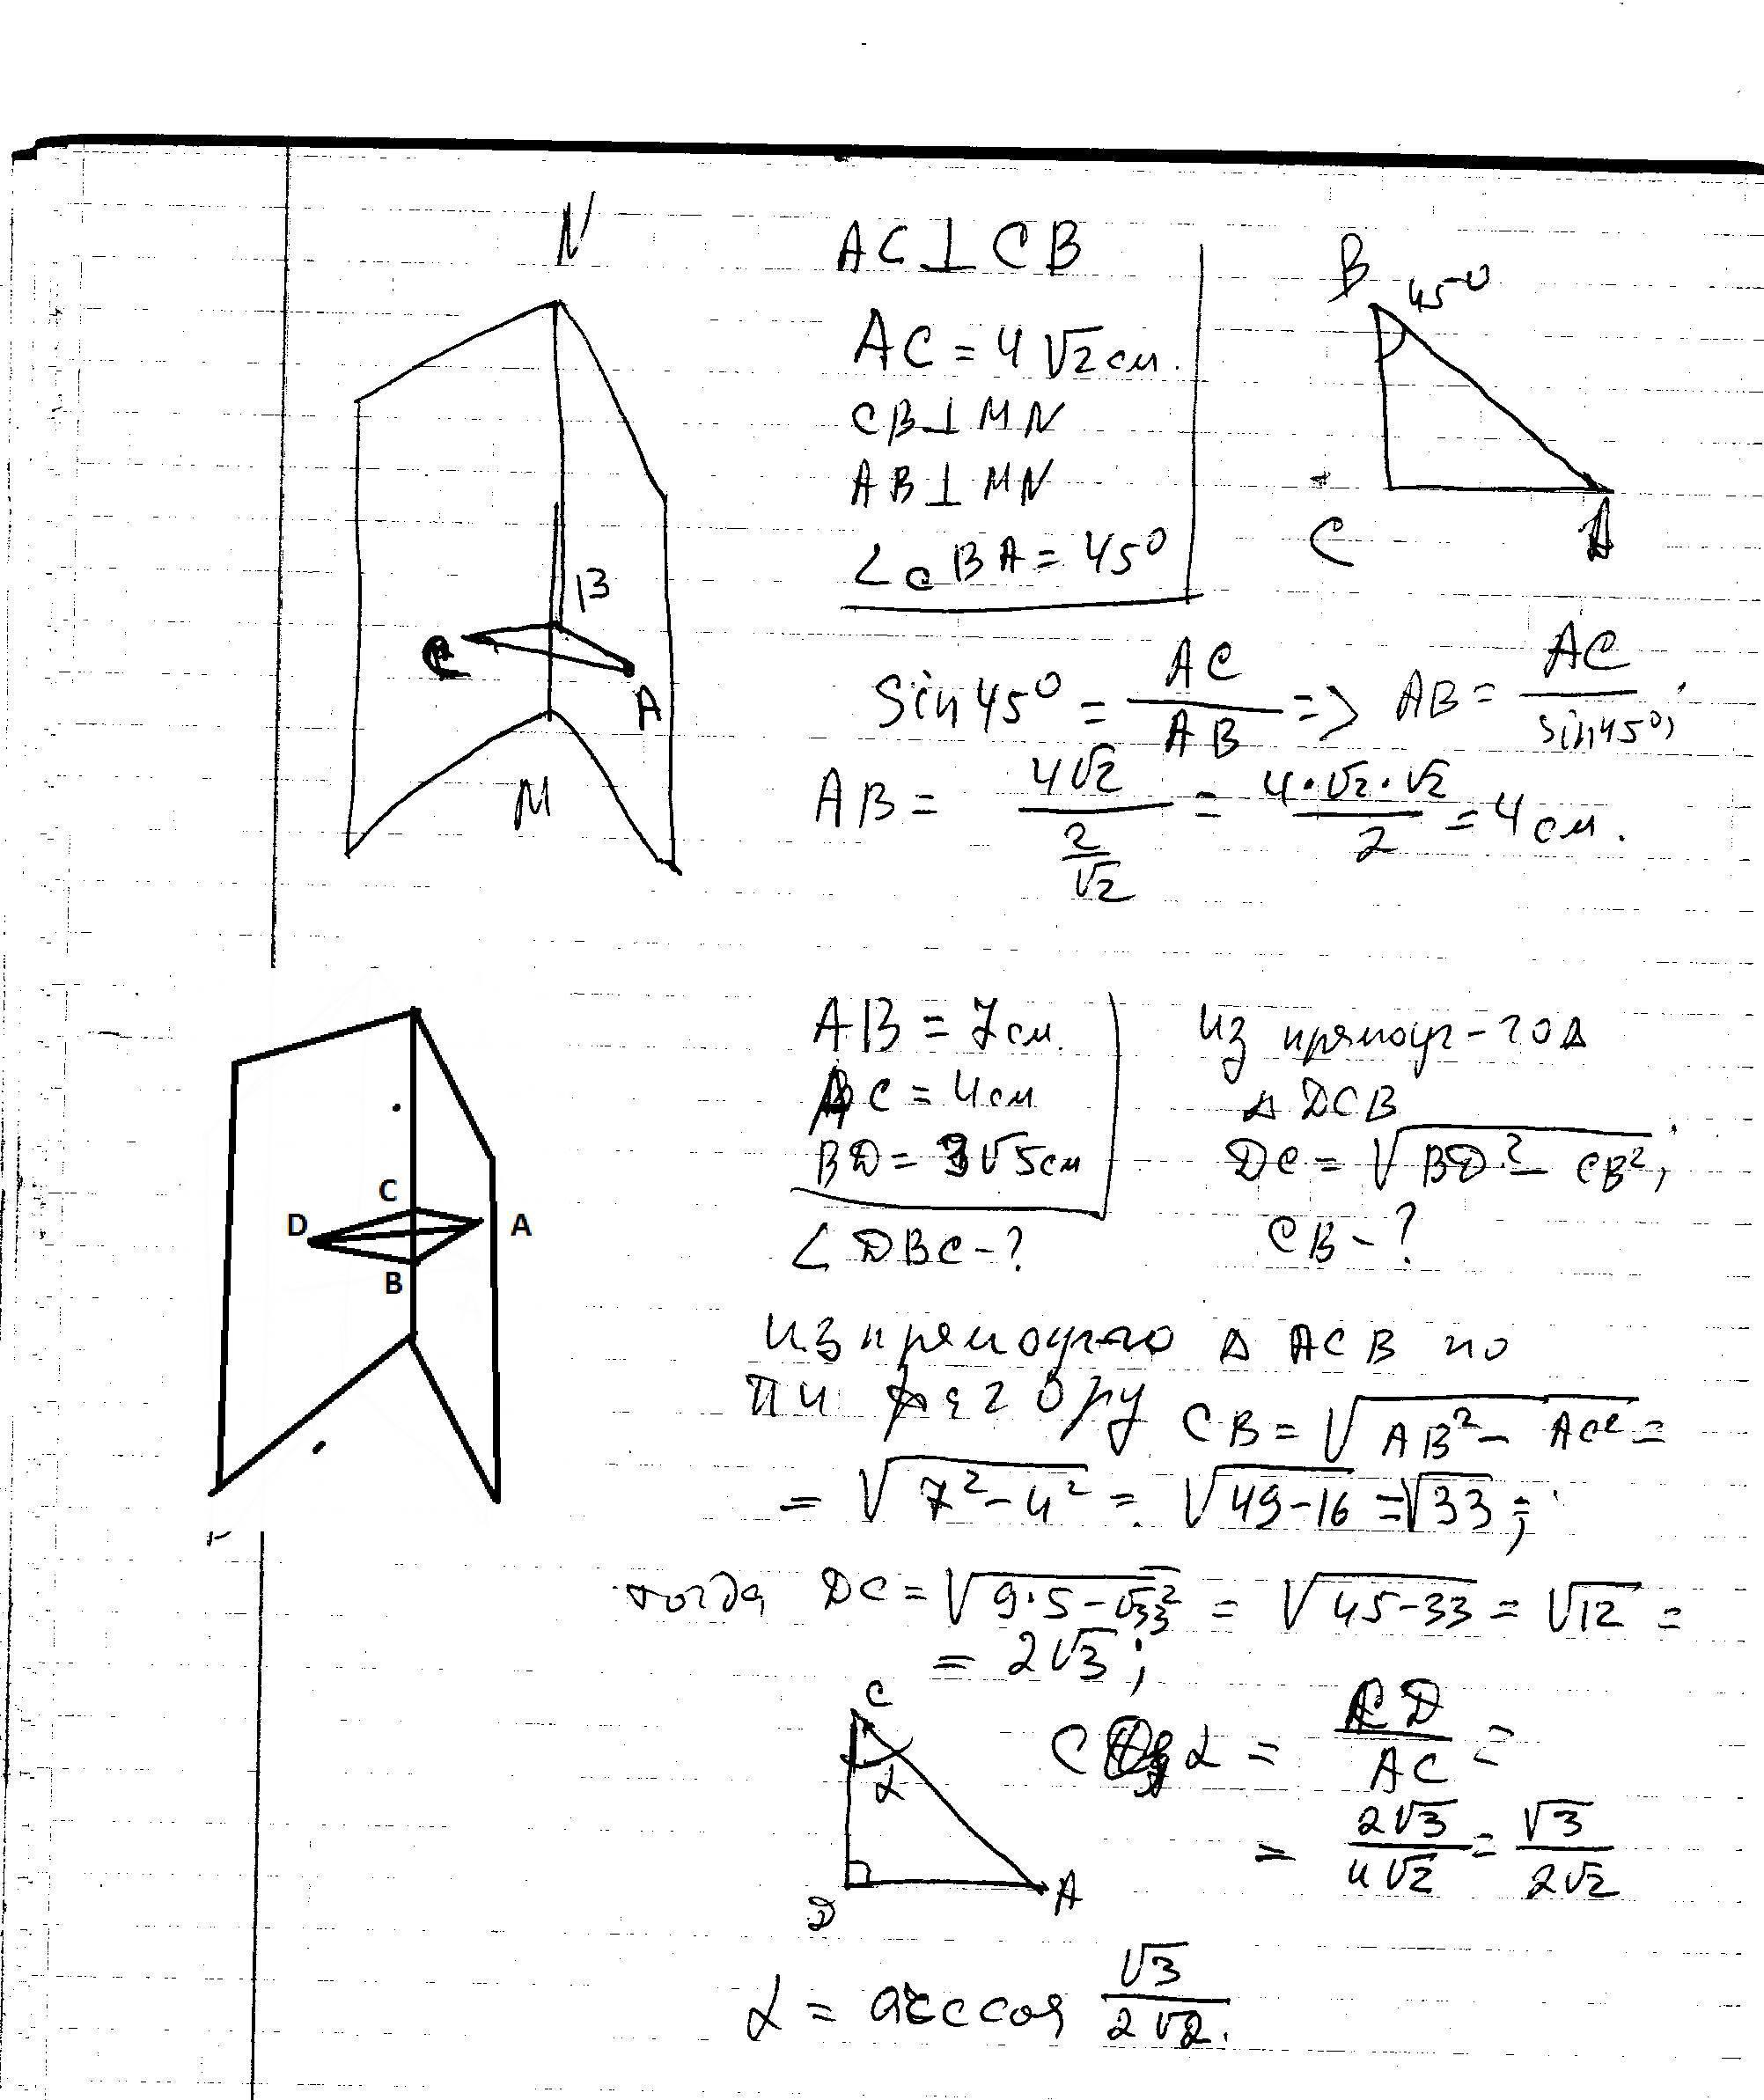 N
AC⊥CB
B 45°
AC = 4√2 см.
CB⊥MN
AB⊥MN
∠CBA = 45°
C A
B
C
A
M
Sin 45° = AC/AB => AB = AC/sin45°;
AB = 4√2/(2/√2) = 4·√2·√2/2 = 4 см.
AB = 7 см.
AC = 4 см
BD = 3√5 см
∠DBC - ?
Из прямоуг-гоΔ
Δ DCB
DC = √(BD² - CB²);
CB - ?
C
D A
B
Из прямоуг-го Δ ACB по
Пифагору CB = √(AB² - AC²) =
= √(7² - 4²) = √(49-16) = √33;
тогда DC = √(9·5 - √33²) = √(45-33) = √12 =
= 2√3;
C
α
D A
Cos α = CD/AC =
= 2√3/4√2 = √3/2√2
α = arccos √3/2√2.